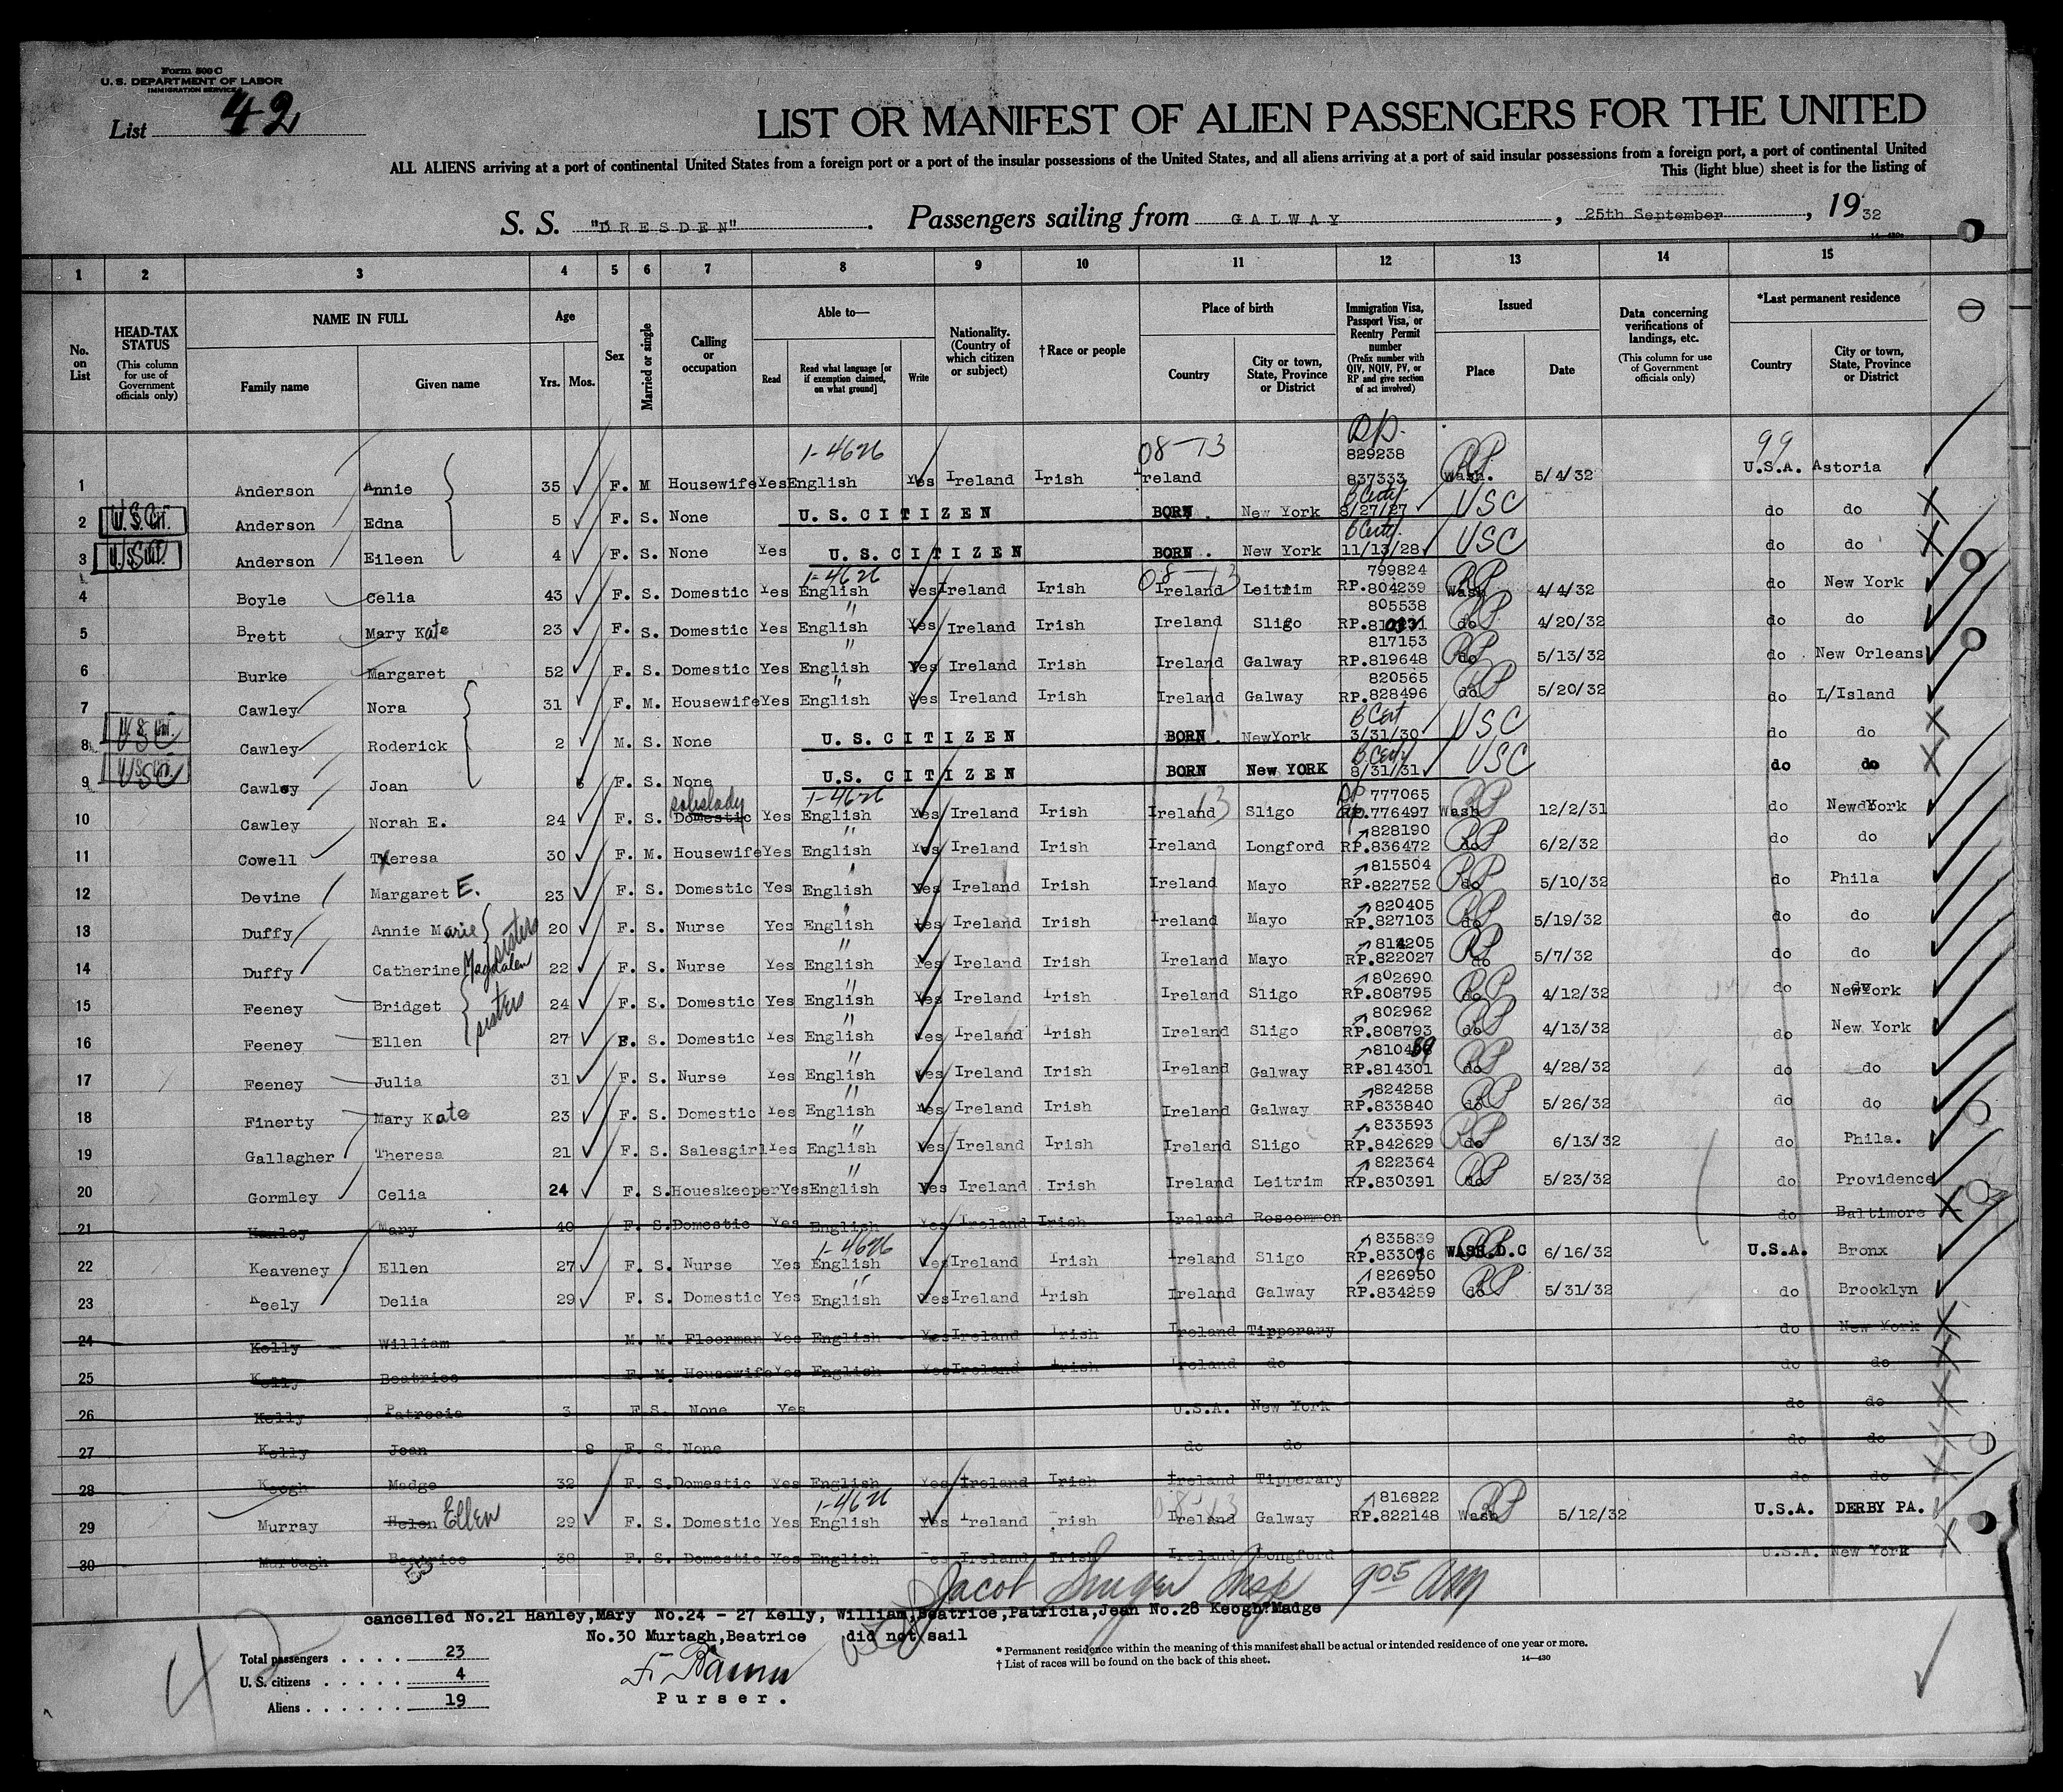 Form 500 C
U. S. DEPARTMENT OF LABOR
IMMIGRATION SERVICE
List 42
LIST OR MANIFEST OF ALIEN PASSENGERS FOR THE UNITED
ALL ALIENS arriving at a port of continental United States from a foreign port or a port of the insular possessions of the United States, and all aliens arriving at a port of said insular possessions from a foreign port, a port of continental United
This (light blue) sheet is for the listing of
S. S. "DRESDEN". Passengers sailing from GALWAY, 25th September, 1932
1 2 3 4 5 6 7 8 9 10 11 12 13 14 15
No. on List
HEAD-TAX STATUS (This column for use of Government officials only)
NAME IN FULL Family name Given name
Age Yrs. Mos.
Sex
Married or single
Calling or occupation
Able to— Read Read what language [or if exemption claimed, on what ground] Write
Nationality. (Country of which citizen or subject)
† Race or people
Place of birth Country City or town, State, Province or District
Immigration Visa, Passport Visa, or Reentry Permit number (Prefix number with QIV, NQIV, PV, or RP and give section of act involved)
Issued Place Date
Data concerning verifications of landings, etc. (This column for use of Government officials only)
*Last permanent residence Country City or town, State, Province or District
1-4626 08-13 829238 99
1 Anderson Annie 35 F. M Housewife Yes English Yes Ireland Irish Ireland 837333 Wash. RP 5/4/32 U.S.A. Astoria
B Certf.
2 U.S. Cit. Anderson Edna 5 F. S. None U. S. CITIZEN BORN. New York 8/27/27 USC do do
B Certf.
3 U.S. Cit. Anderson Eileen 4 F. S. None Yes U. S. CITIZEN BORN. New York 11/13/28 USC do do
1-4626 08-13 799824
4 Boyle Celia 43 F. S. Domestic Yes English Yes Ireland Irish Ireland Leitrim RP.804239 Wash RP 4/4/32 do New York
" 805538
5 Brett Mary Kate 23 F. S. Domestic Yes English Yes Ireland Irish Ireland Sligo do RP 4/20/32 do do
" 817153
6 Burke Margaret 52 F. S. Domestic Yes English Yes Ireland Irish Ireland Galway RP.819648 do RP 5/13/32 do New Orleans
" 820565
7 Cawley Nora 31 F. M. Housewife Yes English Yes Ireland Irish Ireland Galway RP.828496 do RP 5/20/32 do L/Island
B Cert
8 U.S. Cit. USC Cawley Roderick 2 M. S. None U. S. CITIZEN BORN. NewYork 3/31/30 USC do do
B Certf
9 U.S. Cit. USC Cawley Joan F. S. None U.S. CITIZEN BORN New YORK 8/31/31 USC do do
saleslady 1-4626 13 777065
10 Cawley Norah E. 24 F. S. Domestic Yes English Yes Ireland Irish Ireland Sligo RP.776497 Wash RP 12/2/31 do New York
" 828190
11 Cowell Theresa 30 F. M. Housewife Yes English Yes Ireland Irish Ireland Longford RP.836472 do RP 6/2/32 do do
" 815504
12 Devine Margaret E. 23 F. S. Domestic Yes English Yes Ireland Irish Ireland Mayo RP.822752 do RP 5/10/32 do Phila
" 820405
13 Duffy Annie Marie sisters 20 F. S. Nurse Yes English Yes Ireland Irish Ireland Mayo RP.827103 do RP 5/19/32 do do
"
14 Duffy Catherine Magdalen 22 F. S. Nurse Yes English Yes Ireland Irish Ireland Mayo RP.822027 do RP 5/7/32 do do
" 802690
15 Feeney Bridget sisters 24 F. S. Domestic Yes English Yes Ireland Irish Ireland Sligo RP.808795 do RP 4/12/32 do New York
" 802962
16 Feeney Ellen 27 F. S. Domestic Yes English Yes Ireland Irish Ireland Sligo RP.808793 do RP 4/13/32 do New York
"
17 Feeney Julia 31 F. S. Nurse Yes English Yes Ireland Irish Ireland Galway RP.814301 do RP 4/28/32 do do
" 824258
18 Finerty Mary Kate 23 F. S. Domestic Yes English Yes Ireland Irish Ireland Galway RP.833840 do RP 5/26/32 do do
" 833593
19 Gallagher Theresa 21 F. S. Salesgirl Yes English Yes Ireland Irish Ireland Sligo RP.842629 do RP 6/13/32 do Phila.
" 822364
20 Gormley Celia 24 F. S. Houeskeeper Yes English Yes Ireland Irish Ireland Leitrim RP.830391 do RP 5/23/32 do Providence
21 Hanley Mary 40 F. S. Domestic Yes English Yes Ireland Irish Ireland Roscommon do Baltimore
1-4626 835839
22 Keaveney Ellen 27 F. S. Nurse Yes English Yes Ireland Irish Ireland Sligo WASH.D.C RP 6/16/32 U.S.A. Bronx
" 826950
23 Keely Delia 29 F. S. Domestic Yes English Yes Ireland Irish Ireland Galway RP.834259 do RP 5/31/32 do Brooklyn
24 Kelly William M. M. Floorman Yes English Yes Ireland Irish Ireland Tipperary do New York
25 Kelly Beatrice F. M. Housewife Yes English Yes Ireland Irish Ireland do do do
26 Kelly Patrecia 3 F S. None Yes U.S.A. New York do do
27 Kelly Jean F. S. None do do do do
28 Keogh Madge 32 F. S. Domestic Yes English Yes Ireland Irish Ireland Tipperary do do
1-4626 08-13 816822
29 Murray Helen Ellen 29 F. S. Domestic Yes English Yes Ireland Irish Ireland Galway RP.822148 Wash RP 5/12/32 U.S.A. DERBY PA.
30 Murtagh Beatrice 38 F. S. Domestic Yes English Yes Ireland Irish Ireland Longford U.S.A. New York
Jacob Singer Insp 9 05 AM
cancelled No.21 Hanley,Mary No.24 - 27 Kelly, William,Beatrice,Patricia,Jean No.28 Keogh?Madge
No.30 Murtagh,Beatrice did not sail
Total passengers . . . . 23
U. S. citizens . . . . . 4
Aliens . . . . . . 19
Purser.
* Permanent residence within the meaning of this manifest shall be actual or intended residence of one year or more.
† List of races will be found on the back of this sheet.
14—430
42